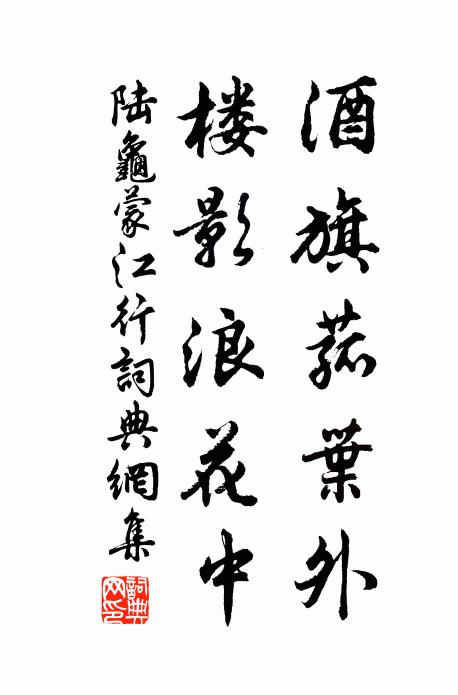 酒旗菰葉外
楼影浪花中
陆龜蒙江行詞典網集
詞典網印